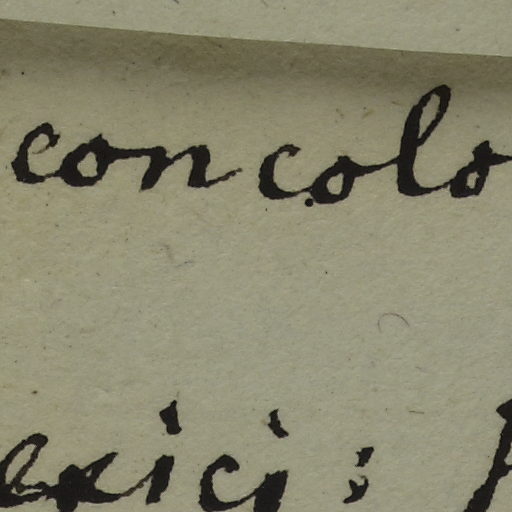 concolo
exici: